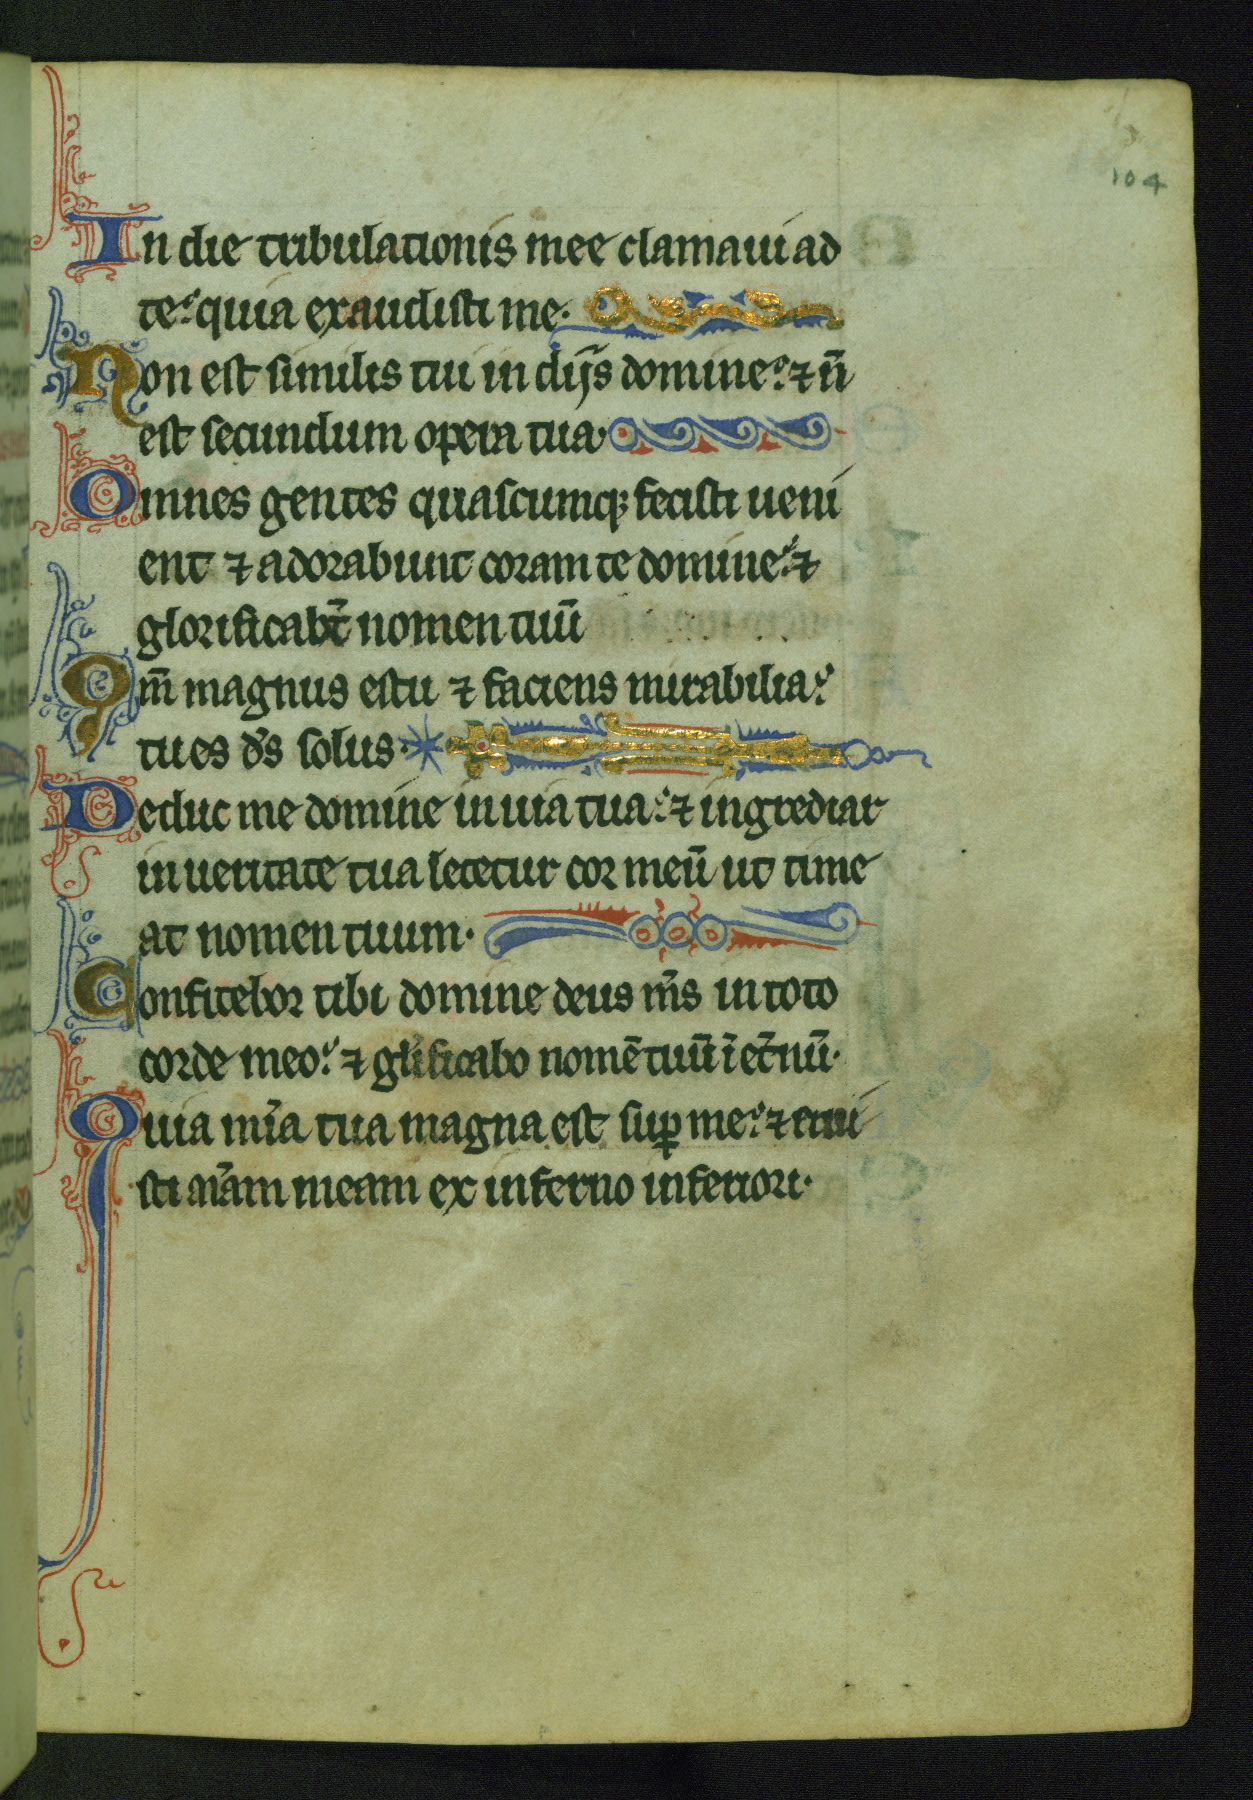 104
In die tribulationis mee clamaui ad
te: quia exaudisti me.
Non est similis tui in dijs domine: ⁊ n̄
est secundum opera tua.
Omnes gentes quascumq; fecisti ueni
ent ⁊ adorabunt coram te domine: ⁊
glorificab̄t nomen tuū
Qm̄ magnus es tu ⁊ faciens mirabilia:
tu es d̄s solus.
Deduc me domine in uia tua: ⁊ ingrediar
in ueritate tua letetur cor meū ut time
at nomen tuum.
Confitebor tibi domine deus m̄s in toto
corde meo: ⁊ gl̄ificabo nomē tuū ī et̄nū.
Quia m̄ia tua magna est suꝑ me: ⁊ erui
sti aīam meam ex inferno inferiori.